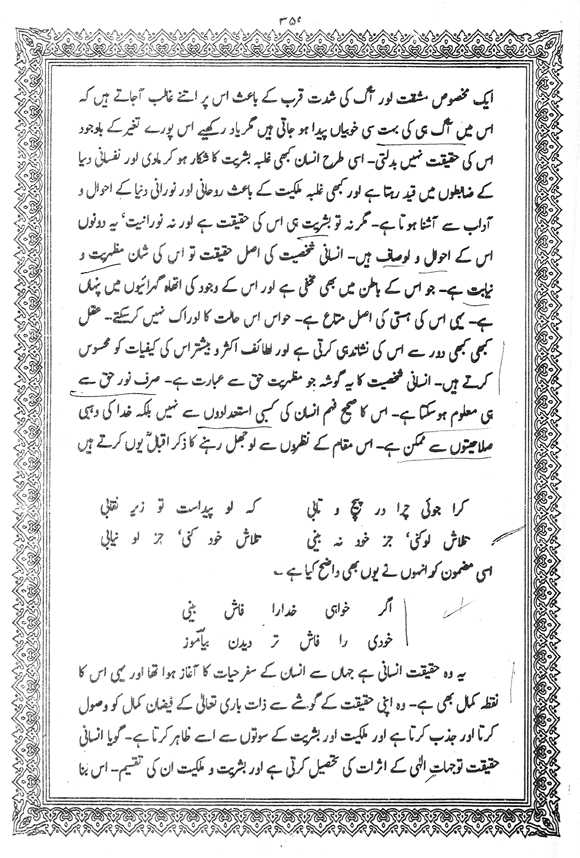 ۳۵۶
ایک مخصوص مشقت اور آگ کی شدت قرب کے باعث اس پر اتنے غالب آجاتے ہیں کہ
اس میں آگ ہی کی بہت سی خوبیاں پیدا ہو جاتی ہیں مگر یاد رکھیے اس پورے تغیر کے باوجود
اس کی حقیقت نہیں بدلتی۔ اسی طرح انسان کبھی غلبہ بشریت کا شکار ہو کر مادی اور نفسانی دنیا
کے ضابطوں میں قید رہتا ہے اور کبھی غلبہ ملکیت کے باعث روحانی اور نورانی دنیا کے احوال و
آداب سے آشنا ہوتا ہے۔ مگر نہ تو بشریت ہی اس کی حقیقت ہے اور نہ نورانیت، یہ دونوں
اس کے احوال و اوصاف ہیں۔ انسانی شخصیت کی اصل حقیقت تو اس کی شان مظہریت و
نیابت ہے۔ جو اس کے باطن میں بھی مخفی ہے اور اس کے وجود کی اتھاہ گہرائیوں میں پنہاں
ہے۔ یہی اس کی ہستی کی اصل متاع ہے۔ حواس اس حالت کا ادراک نہیں کرسکتے۔ عقل
کبھی کبھی دور سے اس کی نشاندہی کرتی ہے اور لطائف اکثر و بیشتر اس کی کیفیات کو محسوس
کرتے ہیں۔ انسانی شخصیت کا یہ گوشہ جو مظہریت حق سے عبارت ہے۔ صرف نور حق سے
ہی معلوم ہوسکتا ہے۔ اس کا صحیح فہم انسان کی کسبی استعدادوں سے نہیں بلکہ خدا کی وہبی
صلاحیتوں سے ممکن ہے۔ اس مقام کے نظروں سے اوجھل رہنے کا ذکر اقبالؒ یوں کرتے ہیں
کرا جوئی چرا در پیچ و تابی کہ او پیداست تو زیر نقابی
تلاش اوکنی، جز خود نہ بینی تلاش خود کنی، جز او نیابی
اسی مضمون کو انہوں نے یوں بھی واضح کیا ہے ۔
اگر خواہی خدارا فاش بینی
خودی را فاش تر دیدن بیاموز
یہ وہ حقیقت انسانی ہے جہاں سے انسان کے سفر حیات کا آغاز ہوا تھا اور یہی اس کا
نقطہ کمال بھی ہے۔ وہ اپنی حقیقت کے گوشے سے ذات باری تعالیٰ کے فیضان کمال کو وصول
کرتا اور جذب کرتا ہے اور ملکیت اور بشریت کے سوتوں سے اسے ظاہر کرتا ہے۔ گویا انسانی
حقیقت توجہات الٰہی کے اثرات کی تحصیل کرتی ہے اور بشریت و ملکیت ان کی تقسیم۔ اس بنا